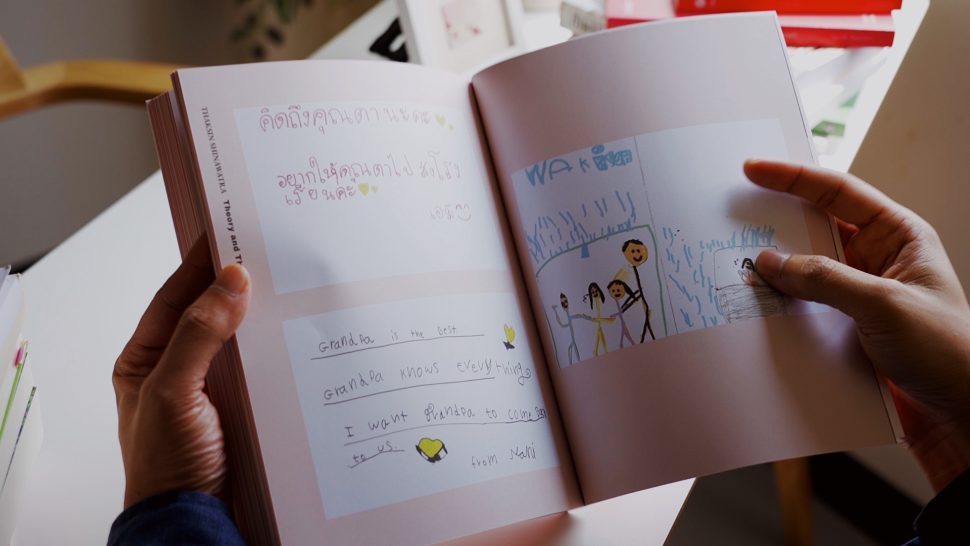 THAKSIN SHINAWATRA Theory and
คิดถึงคุณตานะคะ
อยากให้คุณตาไป
เรียนคะ
Grandpa is the best
Grandpa knows everything
I want grandpa to come
to us.
from Nani